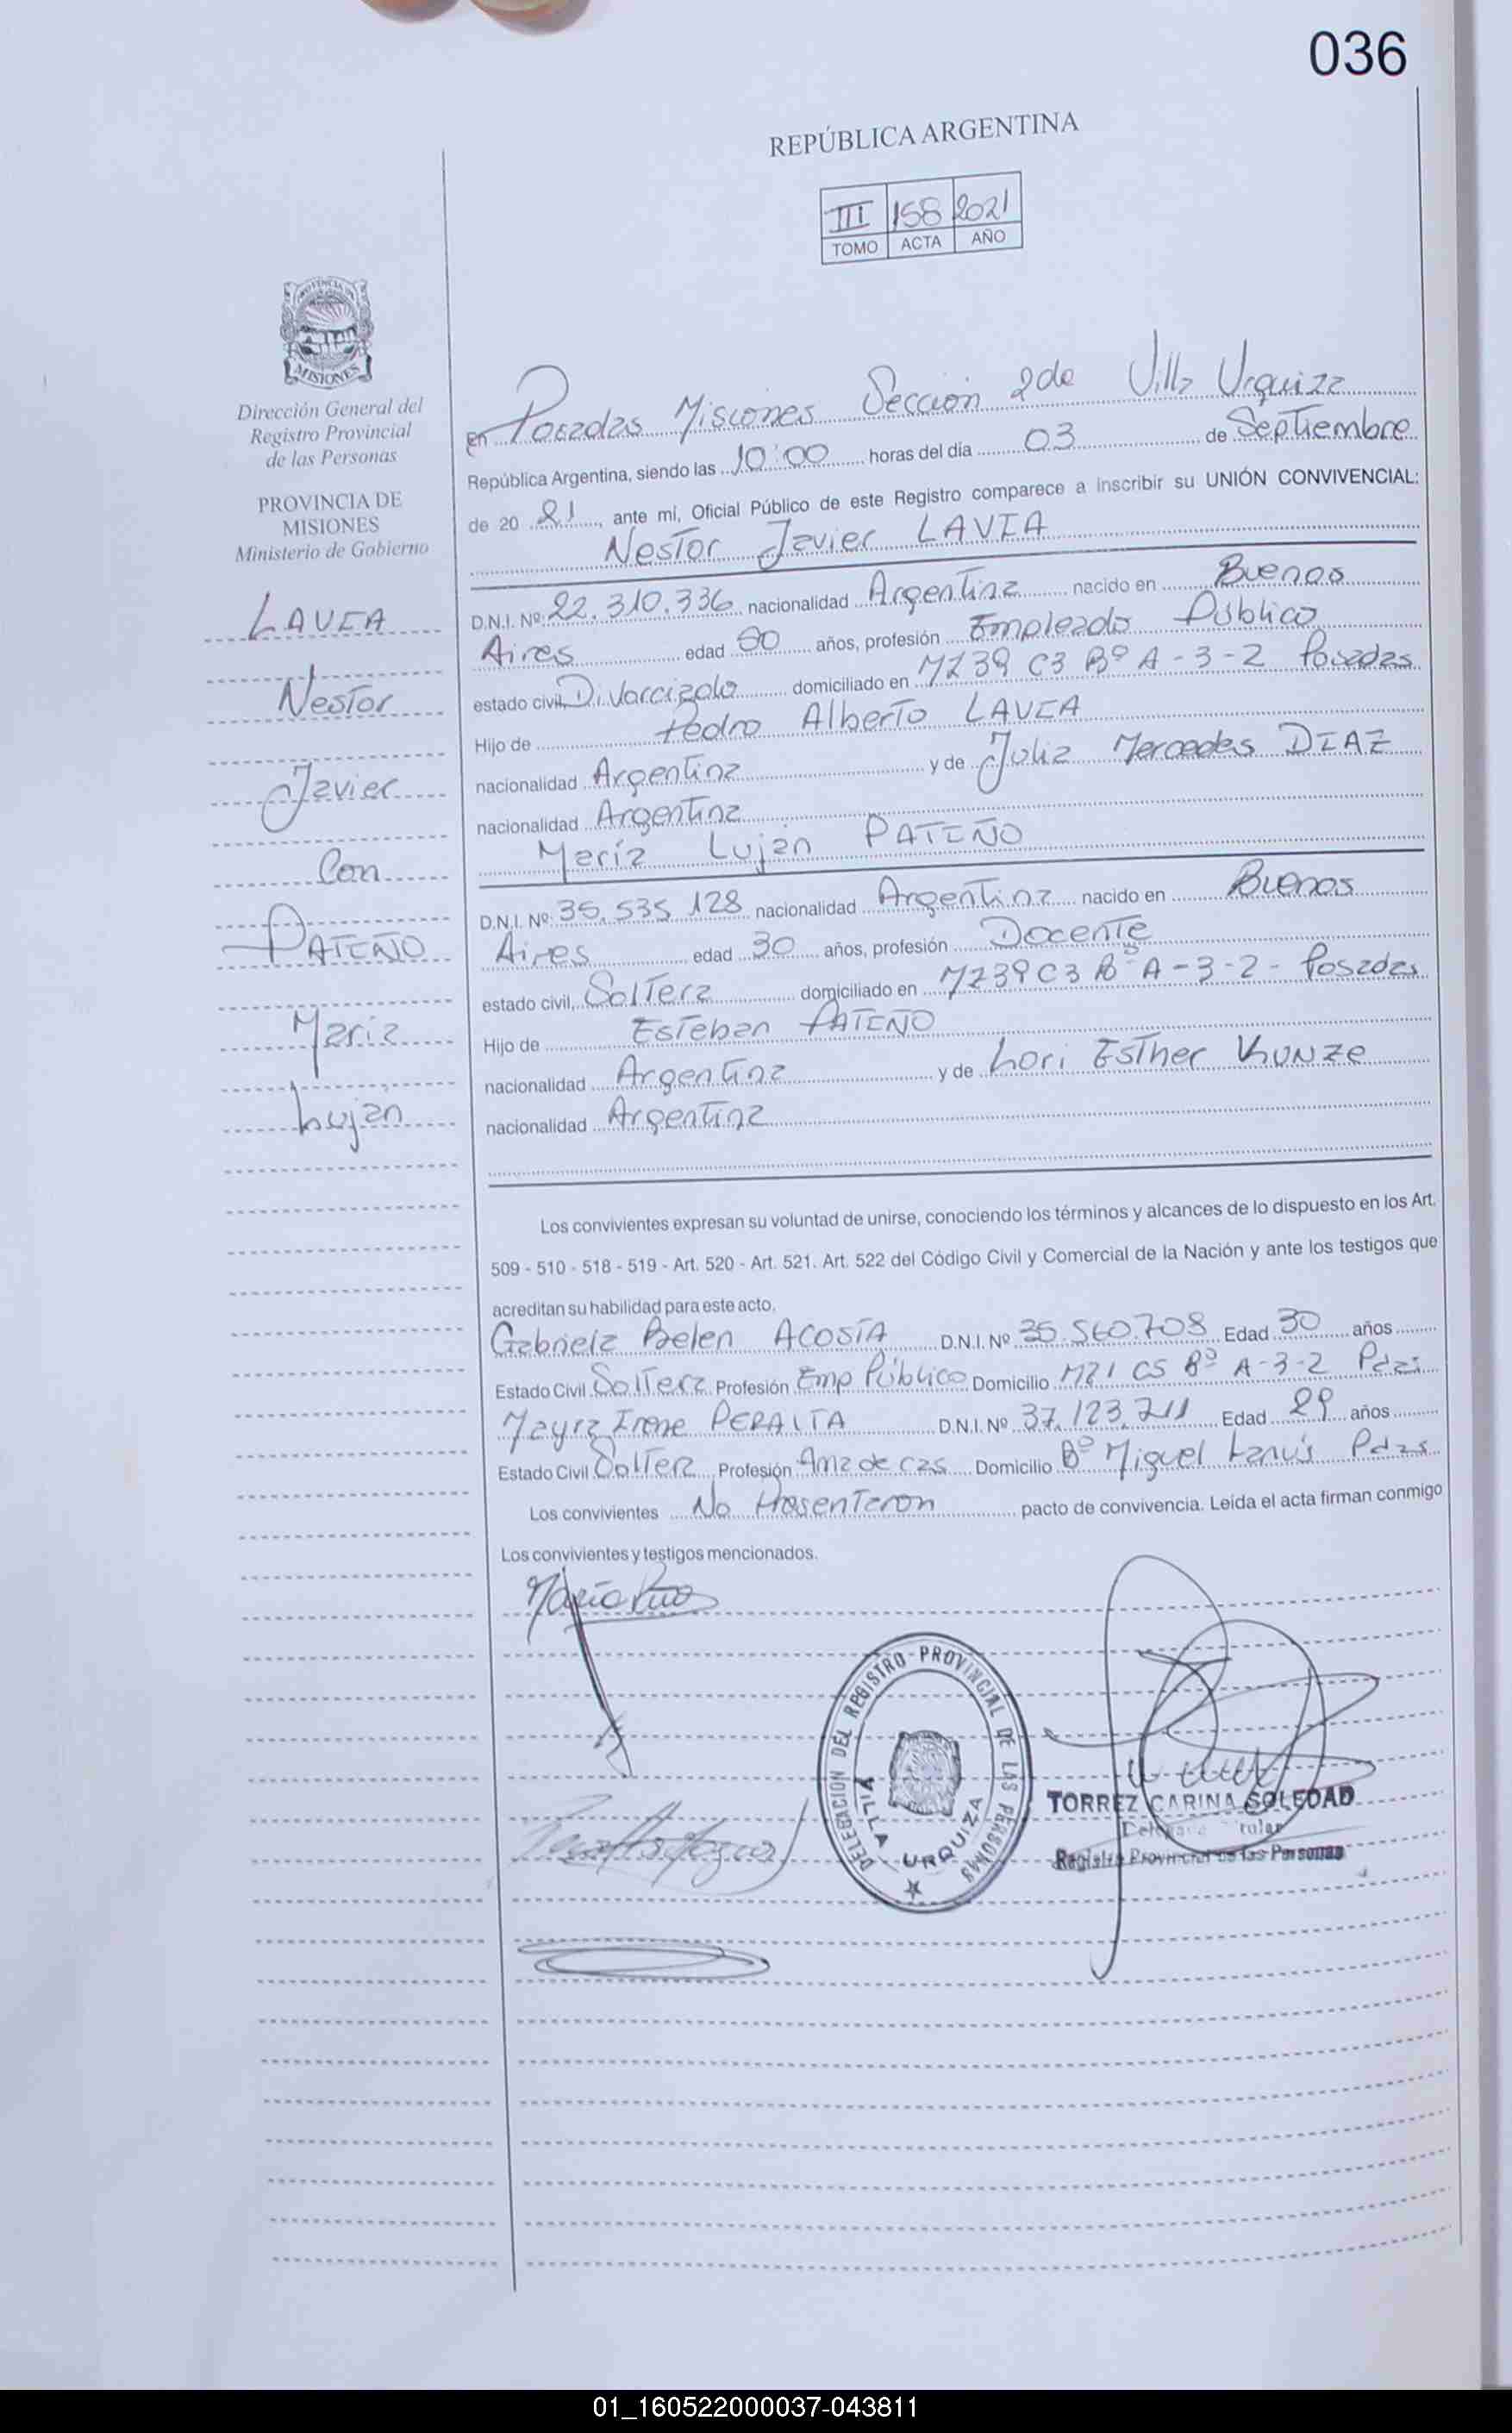 036
REPÚBLICA ARGENTINA
III 158 2021
TOMO ACTA AÑO
MISIONES
Dirección General del
Registro Provincial
de las Personas
PROVINCIA DE
MISIONES
Ministerio de Gobierno
LAVIA
Nestor
Javier
Con
PATIÑO
María
Luján
en Posadas Misiones Sección 2da Villa Urquiza
República Argentina, siendo las 10:00 horas del día 03 de Septiembre
de 20 21, ante mí, Oficial Público de este Registro comparece a inscribir su UNIÓN CONVIVENCIAL:
Nestor Javier LAVIA
D.N.I. Nº 22.310.336 nacionalidad Argentina nacido en Buenos
Aires edad 50 años, profesión Empleado Público
estado civil, Divorciado domiciliado en MZ39 C3 Bº A-3-2 Posadas
Hijo de Pedro Alberto LAVIA
nacionalidad Argentina y de Julia Mercedes DIAZ
nacionalidad Argentina
María Luján PATIÑO
D.N.I. Nº 35.535.128 nacionalidad Argentina nacido en Buenos
Aires edad 30 años, profesión Docente
estado civil, Soltera domiciliado en MZ39 C3 Bº A-3-2- Posadas
Hijo de Esteban PATIÑO
nacionalidad Argentina y de Lori Esther KUNZE
nacionalidad Argentina
Los convivientes expresan su voluntad de unirse, conociendo los términos y alcances de lo dispuesto en los Art.
509 - 510 - 518 - 519 - Art. 520 - Art. 521. Art. 522 del Código Civil y Comercial de la Nación y ante los testigos que
acreditan su habilidad para este acto.
Gabriela Belen ACOSTA D.N.I. Nº 35.560.708 Edad 30 años
Estado Civil Soltera Profesión Emp Público Domicilio MZ1 C5 Bº A-3-2 Pdas
Mayra Irene PERALTA D.N.I. Nº 37.123.711 Edad 29 años
Estado Civil Soltera Profesión Ama de cas Domicilio Bº Miguel Lanús Pdas
Los convivientes No Presentaron pacto de convivencia. Leída el acta firman conmigo
Los convivientes y testigos mencionados.
DELEGACION DEL REGISTRO PROVINCIAL DE LAS PERSONAS
VILLA URQUIZA
TORREZ CARINA SOLEDAD
Registro Provincial de las Personas
01_160522000037-043811